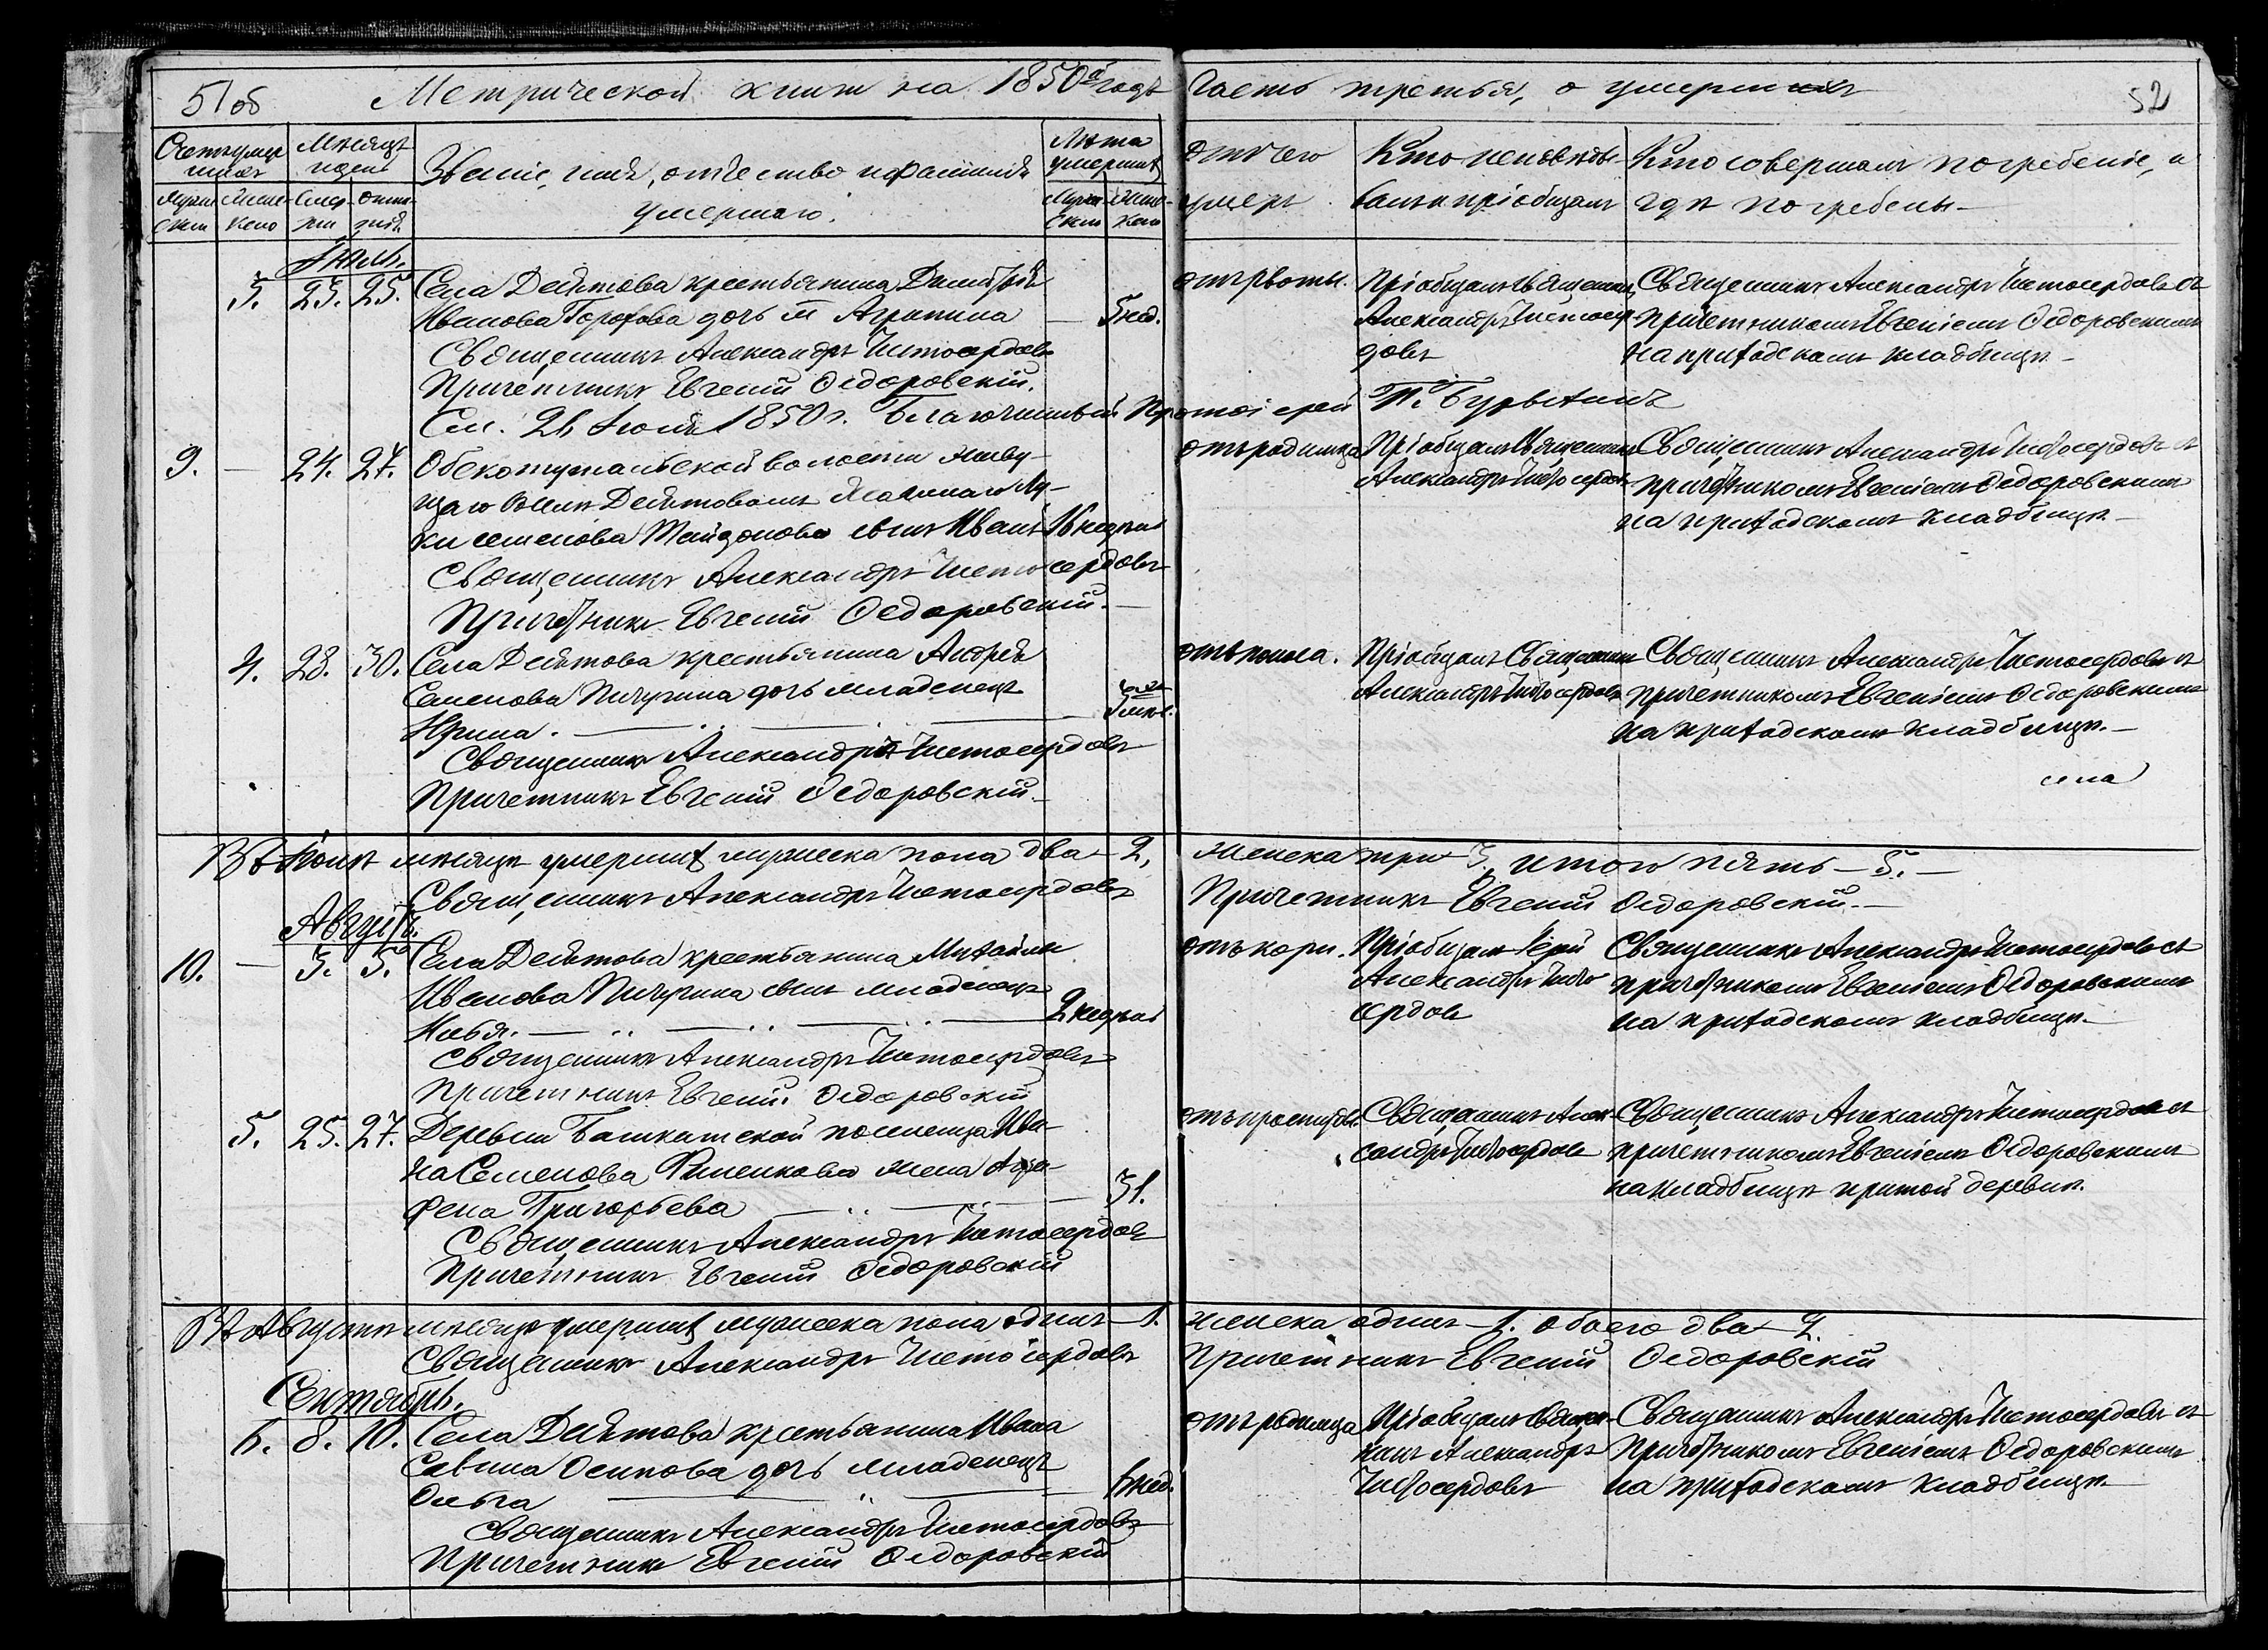 51об
Метрической книги на 1850й годъ
часть третья, о умершихъ
52
Счетъ умершихъ
Мѣсяцъ и день
Званіе, имя, отчество и фамилія умершаго.
Лѣта умершихъ
Отъ чего умеръ
Кто исповѣдывалъ и пріобщалъ
Кто совершалъ погребеніе, и гдѣ погребены.
Мужеска
Женско
Смерти
Мужеска
Женско
3. 23. 25.
Села Девѣтова крестьянина Димитрія
Иванова дочь Агрипина — 5 нед.
Священникъ Александръ Чистосердовъ
Причетникъ Евгеній Ѳедоровскій.
1850 г. Благочинный Протоіерей
отъ рвоты.
Пріобщалъ Священникъ
Александръ Чистосердовъ
Священникъ Александръ Чистосердовъ съ
причетникомъ Евгеніемъ Ѳедоровскимъ
на приходскомъ кладбищѣ.
9. — 24. 27.
волости живу-
щаго Селѣ Девѣтовомъ
Семенова сынъ Иванъ 16 недѣль
Священникъ Александръ Чистосердовъ
Причетникъ Евгеній Ѳедоровскій.
отъ родимца
Пріобщалъ Священникъ
Александръ Чистосердовъ
Священникъ Александръ Чистосердовъ съ
причетникомъ Евгеніемъ Ѳедоровскимъ
на приходскомъ кладбищѣ.
4. 28. 30.
Села Девѣтова крестьянина Андрея
Семенова Пичугина дочь младенецъ
Ирина.
Священникъ Александръ Чистосердовъ
Причетникъ Евгеній Ѳедоровскій.
отъ поноса.
Пріобщалъ Священникъ
Александръ Чистосердовъ
Священникъ Александръ Чистосердовъ съ
причетникомъ Евгеніемъ Ѳедоровскимъ
на приходскомъ кладбищѣ.
села
мѣсяцѣ умершихъ мужеска пола два — 2,
женска три 3, итого пять — 5. —
Священникъ Александръ Чистосердовъ
Причетникъ Евгеній Ѳедоровскій. —
Августъ.
10. — 3. 5.
Села Девѣтова крестьянина Михаила
Иванова Пичугина сынъ младенецъ
Илья. — 2 недѣли
Священникъ Александръ Чистосердовъ
Причетникъ Евгеній Ѳедоровскій
отъ кори.
Пріобщалъ Іерей
Александръ Чисто
сердовъ
Священникъ Александръ Чистосердовъ съ
причетникомъ Евгеніемъ Ѳедоровскимъ
на приходскомъ кладбищѣ.
5. 25. 27.
Деревни Башкатской поселенца Ива-
на Семенова жена Агра-
фена Григорьева — 31.
Священникъ Александръ Чистосердовъ
Причетникъ Евгеній Ѳедоровскій
отъ простуды.
Священникъ Алек-
сандръ Чистосердовъ
Священникъ Александръ Чистосердовъ съ
причетникомъ Евгеніемъ Ѳедоровскимъ
на кладбищѣ при той деревнѣ.
Въ Августѣ мѣсяцѣ умершихъ мужеска пола одинъ — 1.
женска одинъ — 1. обоего два — 2.
Священникъ Александръ Чистосердовъ
Причетникъ Евгеній Ѳедоровскій
Сентябрь.
6. 8. 10.
Села Девѣтова крестьянина Ивана
Савина Осипова дочь младенецъ
Ольга — 6 нед.
Священникъ Александръ Чистосердовъ
Причетникъ Евгеній Ѳедоровскій
отъ родимца
Пріобщалъ Священ-
никъ Александръ
Чистосердовъ
Священникъ Александръ Чистосердовъ съ
Причетникомъ Евгеніемъ Ѳедоровскимъ
на приходскомъ кладбищѣ.